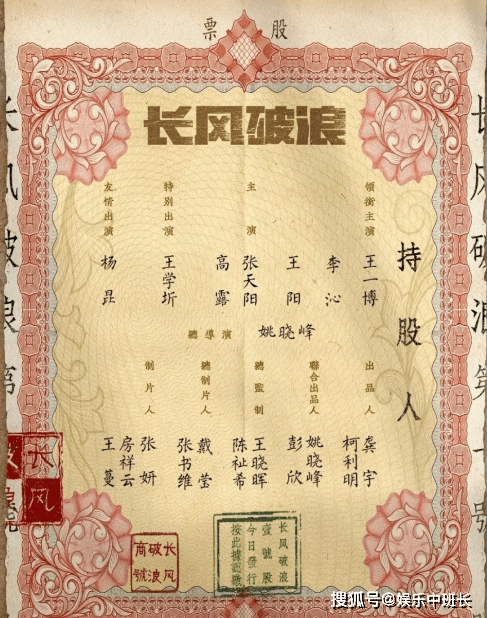 股票
长风破浪
持股人
領銜主演
王一博
李沁
主演
王阳
张天阳
高露
特别出演
王学圻
友情出演
杨昆
總導演
姚晓峰
出品人
龚宇
柯利明
聯合出品人
姚晓峰
彭欣
總監制
王晓晖
陈祉希
總制片人
戴莹
张书维
制片人
张妍
房祥云
王蔓
长风破浪第一號
长风
长风
破浪
商號
长风破浪
壹號股
今日發行
搜狐号@娱乐中班长